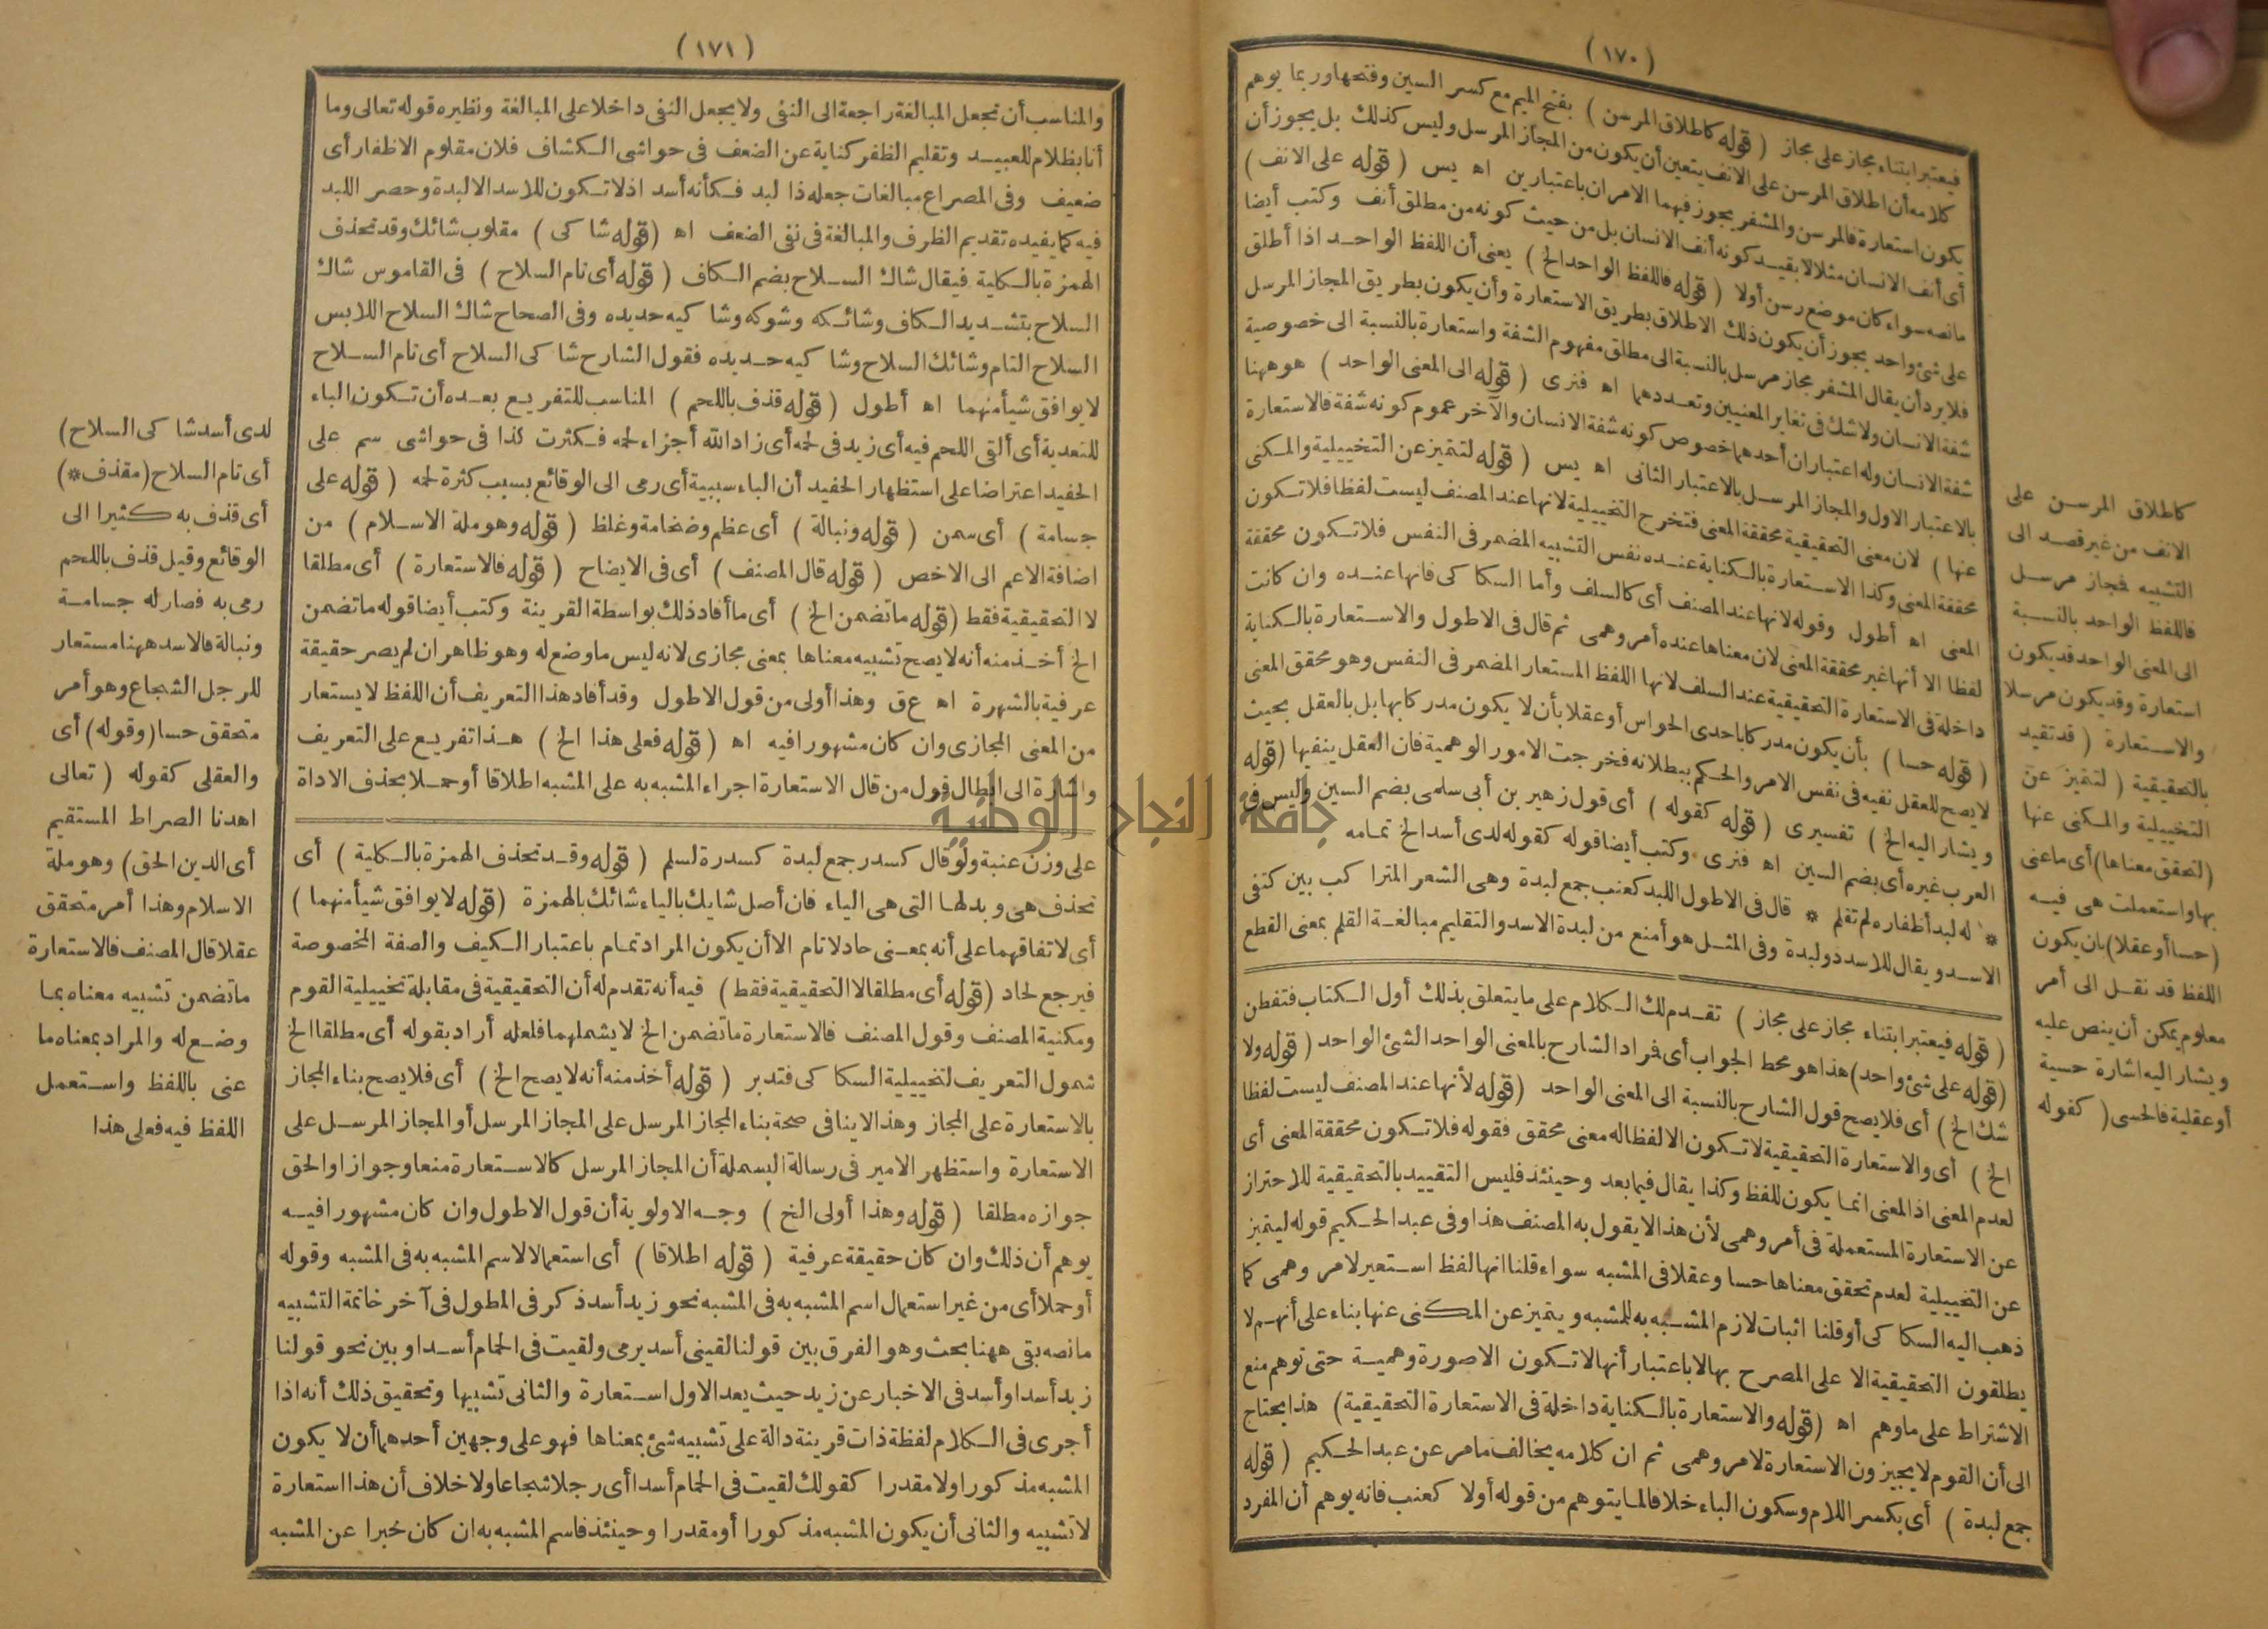 ( ١٧٠ )
فيعتبر ابتناء مجاز على مجاز ( قوله كاطلاق المرسن ) بفتح الميم مع كسر السين وفتحها وربما يوهم
كلامه أن اطلاق المرسن على الانف يتعين أن يكون من المجاز المرسل وليس كذلك بل يجوز أن
يكون استعارة فالمرسن والمشفر يجوز فيهما الامران باعتبارين اه يس ( قوله على الانف )
أى أنف الانسان مثلا لا بقيد كونه أنف الانسان بل من حيث كونه من مطلق أنف وكتب أيضا
مانصه سواء كان موضع رسن أولا ( قوله فاللفظ الواحد الخ ) يعنى أن اللفظ الواحد اذا أطلق
على شئ واحد يجوز أن يكون ذلك الاطلاق بطريق الاستعارة وأن يكون بطريق المجاز المرسل
فلا يرد أن يقال المشفر مجاز مرسل بالنسبة الى مطلق مفهوم الشفة واستعارة بالنسبة الى خصوصية
شفة الانسان ولا شك فى تغاير المعنيين وتعددهما اه فنرى ( قوله الى المعنى الواحد ) هو ههنا
شفة الانسان وله اعتباران أحدهما خصوص كونه شفة الانسان والآخر عموم كونه شفة فالاستعارة
بالاعتبار الاول والمجاز المرسل بالاعتبار الثانى اه يس ( قوله لتتميز عن التخييلية والمكنى
عنها ) لان معنى التحقيقية محققة المعنى فتخرج التخييلية لانها عند المصنف ليست لفظا فلا تكون
محققة المعنى وكذا الاستعارة بالكناية عنده نفس التشبيه المضمر فى النفس فلا تكون محققة
المعنى اه أطول وقوله لانها عند المصنف أى كالسلف وأما السكاكى فانها عنده وان كانت
لفظا الا أنها غير محققة المعنى لان معناها عنده أمر وهمى ثم قال فى الاطول والاستعارة بالكناية
داخلة فى الاستعارة التحقيقية عند السلف لانها اللفظ المستعار المضمر فى النفس وهو محقق المعنى
( قوله حسا ) بأن يكون مدركا باحدى الحواس أو عقلا بأن لا يكون مدركا بها بل بالعقل بحيث
لا يصح للعقل نفيه فى نفس الامر والحكم ببطلانه فخرجت الامور الوهمية فان العقل ينفيها ( قوله
ويشار اليه الخ ) تفسيرى ( قوله كقوله ) أى قول زهير بن أبى سلمى بضم السين وليس فى
العرب غيره أى بضم السين اه فنرى وكتب أيضا قوله كقوله لدى أسد الخ تمامه
* له لبد أظفاره لم تقلم * قال فى الاطول اللبد كعنب جمع لبدة وهى الشعر المتراكب بين كتفى
الاسد ويقال للاسد ذو لبدة وفى المثل هو أمنع من لبدة الاسد والتقليم مبالغة القلم بمعنى القطع
( قوله فيعتبر ابتناء مجاز على مجاز ) تقدم لك الكلام على ما يتعلق بذلك أول الكتاب فتفطن
( قوله على شئ واحد ) هذا هو محط الجواب أى فمراد الشارح بالمعنى الواحد الشئ الواحد ( قوله ولا
شك الخ ) أى فلا يصح قول الشارح بالنسبة الى المعنى الواحد ( قوله لأنها عند المصنف ليست لفظا
الخ ) أى والاستعارة التحقيقية لا تكون الا لفظا له معنى محقق فقوله فلا تكون محققة المعنى أى
لعدم المعنى اذ المعنى انما يكون للفظ وكذا يقال فيما بعد وحينئذ فليس التقييد بالتحقيقية للاحتراز
عن الاستعارة المستعملة فى أمر وهمى لأن هذا لا يقول به المصنف هذا وفى عبد الحكيم قوله ليتميز
عن التخييلية لعدم تحقق معناها حسا وعقلا فى المشبه سواء قلنا انها لفظ استعير لامر وهمى كما
ذهب اليه السكاكى أو قلنا اثبات لازم المشبه به للمشبه ويتميز عن المكنى عنها بناء على أنهم لا
يطلقون التحقيقية الا على المصرح بها لا باعتبار أنها لا تكون الا صورة وهمية حتى توهم منع
الاشتراط على ما وهم اه ( قوله والاستعارة بالكناية داخلة فى الاستعارة التحقيقية ) هذا يحتاج
الى أن القوم لا يجيزون الاستعارة لامر وهمى ثم ان كلامه يخالف ما مر عن عبد الحكيم ( قوله
جمع لبدة ) أى بكسر اللام وسكون الباء خلافا لما يتوهم من قوله أولا كعنب فانه يوهم أن المفرد
كاطلاق المرسن على
الانف من غير قصد الى
التشبيه فمجاز مرسل
فاللفظ الواحد بالنسبة
الى المعنى الواحد قد يكون
استعارة وقد يكون مرسلا
والاستعارة ( قد تقيد
بالتحقيقية ( لتتميز عن
التخييلية والمكنى عنها
( لتحقق معناها ) أى ما عنى
بها واستعملت هى فيه
( حسا أو عقلا ) بان يكون
اللفظ قد نقل الى أمر
معلوم يمكن أن ينص عليه
ويشار اليه اشارة حسية
أو عقلية فالحسى ( كقوله
( ١٧١ )
والمناسب أن تجعل المبالغة راجعة الى النفى ولا يجعل النفى داخلا على المبالغة ونظيره قوله تعالى وما
أنا بظلام للعبيد وتقليم الظفر كناية عن الضعف فى حواشى الكشاف فلان مقلوم الاظفار أى
ضعيف وفى المصراع مبالغات جعله ذا لبد فكأنه أسد اذ لا تكون للاسد الا لبدة وحصر اللبد
فيه كما يفيده تقديم الظرف والمبالغة فى نفى الضعف اه ( قوله شاكى ) مقلوب شائك وقد تحذف
الهمزة بالكلية فيقال شاك السلاح بضم الكاف ( قوله أى تام السلاح ) فى القاموس شاك
السلاح بتشديد الكاف وشائكه وشوكه وشاكيه حديده وفى الصحاح شاك السلاح اللابس
السلاح التام وشائك السلاح وشاكيه حديده فقول الشارح شاكى السلاح أى تام السلاح
لا يوافق شيأ منهما اه أطول ( قوله قذف باللحم ) المناسب للتفريع بعده أن تكون الباء
للتعدية أى ألقى اللحم فيه أى زيد فى لحمه أى زاد الله أجزاء لحمه فكثرت كذا فى حواشى سم على
الحفيد اعتراضا على استظهار الحفيد أن الباء سببية أى رمى الى الوقائع بسبب كثرة لحمه ( قوله على
جسامة ) أى سمن ( قوله ونبالة ) أى عظم وضخامة وغلظ ( قوله وهو ملة الاسلام ) من
اضافة الاعم الى الاخص ( قوله قال المصنف ) أى فى الايضاح ( قوله فالاستعارة ) أى مطلقا
لا التحقيقية فقط ( قوله ما تضمن الخ ) أى ما أفاد ذلك بواسطة القرينة وكتب أيضا قوله ما تضمن
الخ أخذ منه أنه لا يصح تشبيه معناها بمعنى مجازى لانه ليس ما وضع له وهو ظاهر ان لم يصر حقيقة
عرفية بالشهرة اه ع ق وهذا أولى من قول الاطول وقد أفاد هذا التعريف أن اللفظ لا يستعار
من المعنى المجازى وان كان مشهورا فيه اه ( قوله فعلى هذا الخ ) هذا تفريع على التعريف
واشارة الى ابطال قول من قال الاستعارة اجراء المشبه به على المشبه اطلاقا أو حملا بحذف الاداة
على وزن عنبة ولو قال كسدر جمع لبدة كسدرة لسلم ( قوله وقد تحذف الهمزة بالكلية ) أى
تحذف هى وبدلها التى هى الياء فان أصل شايك بالياء شائك بالهمزة ( قوله لا يوافق شيأ منهما )
أى لاتفاقهما على أنه بمعنى حاد لا تام الا أن يكون المراد تمام باعتبار الكيف والصفة المخصوصة
فيرجع لحاد ( قوله أى مطلقا لا التحقيقية فقط ) فيه أنه تقدم له أن التحقيقية فى مقابلة تخييلية القوم
ومكنية المصنف وقول المصنف فالاستعارة ما تضمن الخ لا يشملهما فلعله أراد بقوله أى مطلقا الخ
شمول التعريف لتخييلية السكاكى فتدبر ( قوله أخذ منه أنه لا يصح الخ ) أى فلا يصح بناء المجاز
بالاستعارة على المجاز وهذا لا ينافى صحة بناء المجاز المرسل على المجاز المرسل أو المجاز المرسل على
الاستعارة واستظهر الامير فى رسالة البسملة أن المجاز المرسل كالاستعارة منعا وجوازا والحق
جوازه مطلقا ( قوله وهذا أولى الخ ) وجه الاولوية أن قول الاطول وان كان مشهورا فيه
يوهم أن ذلك وان كان حقيقة عرفية ( قوله اطلاقا ) أى استعمالا لاسم المشبه به فى المشبه وقوله
أو حملا أى من غير استعمال اسم المشبه به فى المشبه نحو زيد أسد ذكر فى المطول فى آخر خاتمة التشبيه
مانصه بقى ههنا بحث وهو الفرق بين قولنا لقينى أسد يرمى ولقيت فى الحمام أسدا وبين نحو قولنا
زيد أسد أو أسد فى الاخبار عن زيد حيث يعد الاول استعارة والثانى تشبيها وتحقيق ذلك أنه اذا
أجرى فى الكلام لفظة ذات قرينة دالة على تشبيه شئ بمعناها فهو على وجهين أحدهما أن لا يكون
المشبه مذكورا ولا مقدرا كقولك لقيت فى الحمام أسدا أى رجلا شجاعا ولا خلاف أن هذا استعارة
لا تشبيه والثانى أن يكون المشبه مذكورا أو مقدرا وحينئذ فاسم المشبه به ان كان خبرا عن المشبه
لدى أسد شاكى السلاح )
أى تام السلاح ( مقذف * )
أى قذف به كثيرا الى
الوقائع وقيل قذف باللحم
رمى به فصار له جسامة
ونبالة فالاسد ههنا مستعار
للرجل الشجاع وهو أمر
متحقق حسا ( وقوله ) أى
والعقلى كقوله ( تعالى
اهدنا الصراط المستقيم
أى الدين الحق ) وهو ملة
الاسلام وهذا أمر متحقق
عقلا قال المصنف فالاستعارة
ما تضمن تشبيه معناه بما
وضع له والمراد بمعناه ما
عنى باللفظ واستعمل
اللفظ فيه فعلى هذا
جامعة النجاح الوطنية